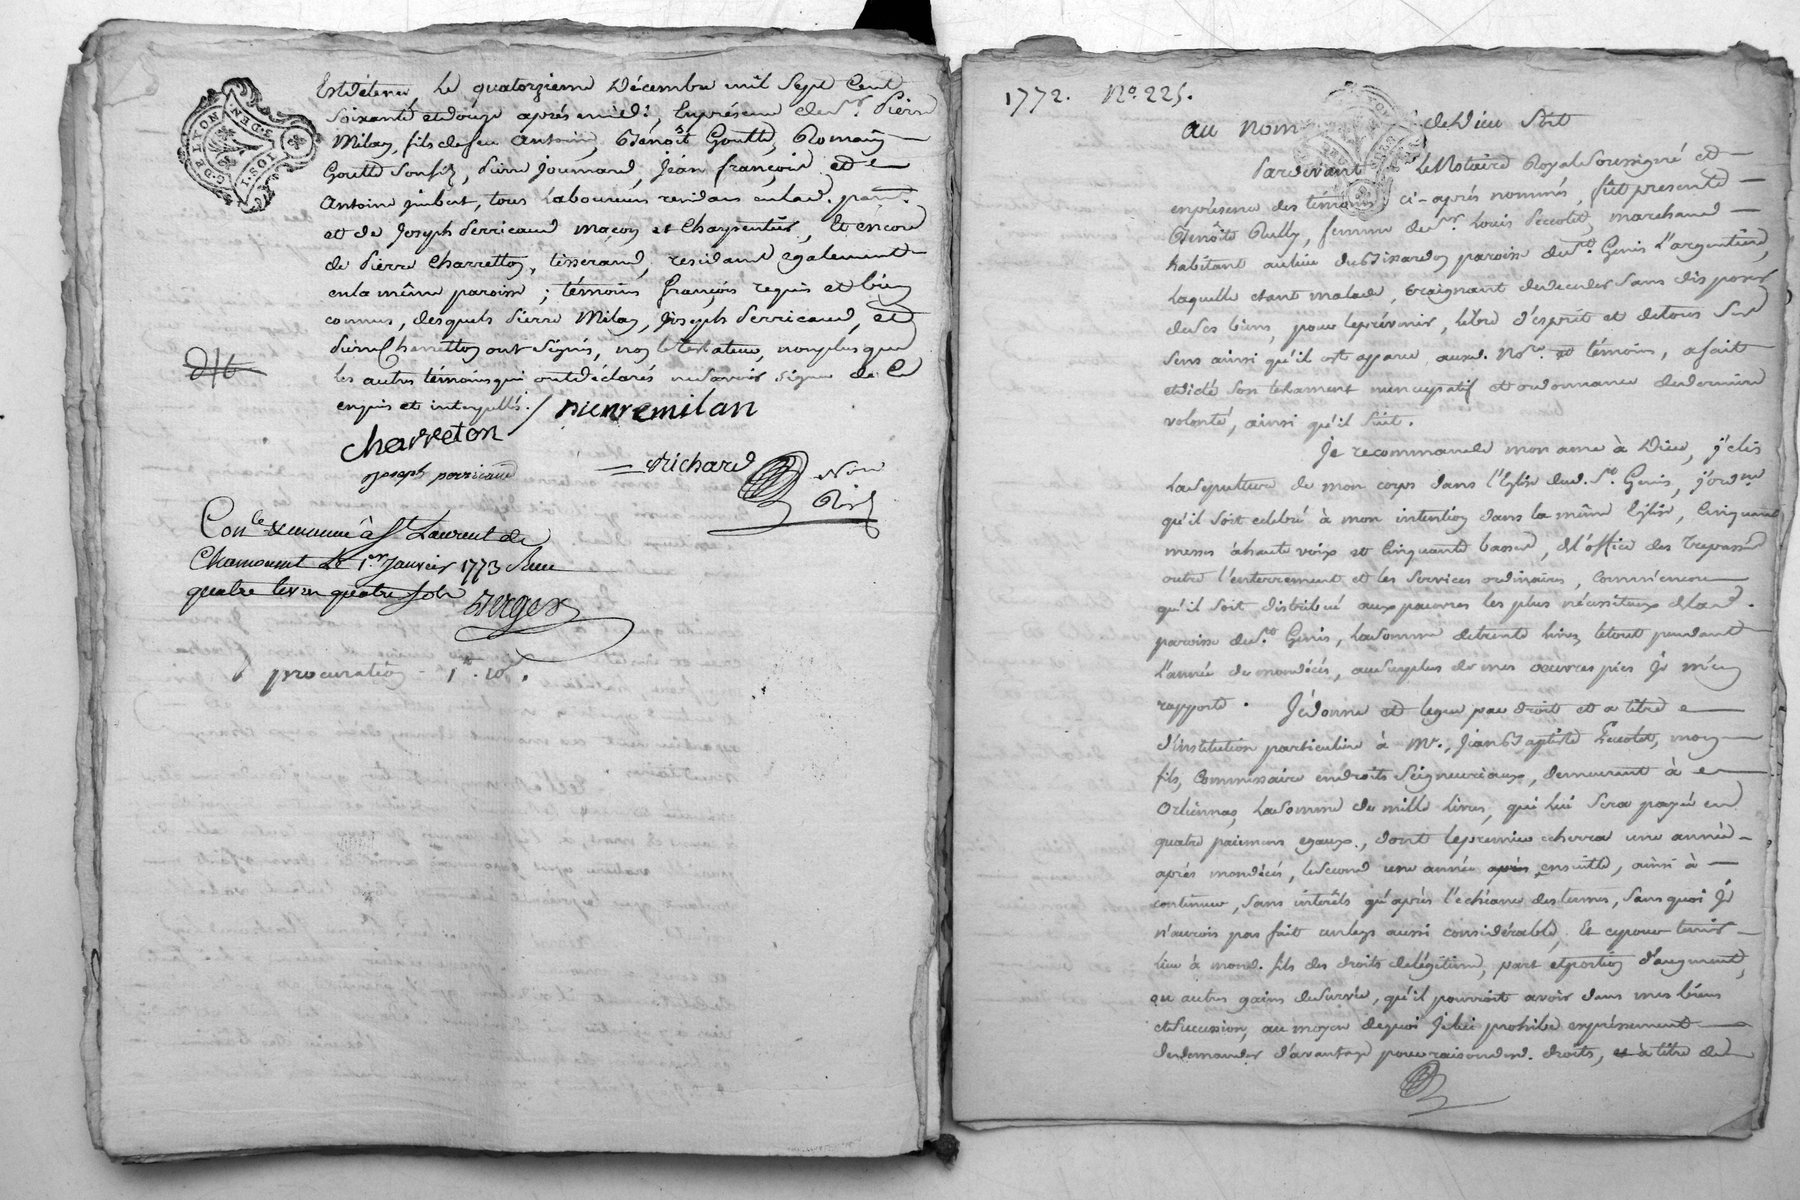 G. DE LYON
3. DEN.
1. SOL.
le quatorzieme Décembre mil Sept Cent
Soixante et douze après midi, En présence de Sr. Pierre
Milan, fils de feu Antoine, Benoît Goutte, Romain
Goutte son fils, Pierre Joumard, Jean françois et
Antoine Jimbert, tous Laboureurs residans en lad. parsse.
et de Joseph Perricaud maçon et Charpentier, Et encore
de Pierre Charretton, tisserand, residant également
en la même paroisse; témoins françois requis et bien
connus, desquels Pierre Milan, Joseph Perricaud, et
Pierre Charretton ont Signés, non le testateur, non plus que
les autres témoins qui ont déclarés ne savoir signer de ce
enquis et interpellés. / pierre milan
charreton
joseph perricaud
Richard
Nre
Rial
Conlé & numé à St Laurent de
Chamousset le 1er Janvier 1773 Reçu
quatre livres quatre sols
procuration - 1tt. 10s.
1772. No. 225.
au nom de Dieu Soit
Pardevant Le Notaire Royal Soussigné et
en présence des témoins ci-après nommés, fût présente
Benoîte Rully, femme de Sr. Louis Peccolet, marchand
habitant au lieu du Bissardon paroisse de St. Genis l'argentière,
Laquelle étant malade, Craignant de deceder Sans disposer
de Ses biens, pour le prévenir, libre d'esprit et de tous Ses
Sens ainsi qu'il est apparu aud. Nore. et témoins, a fait
et dicté Son testament nuncupatif et ordonnance de derniere
volonté, ainsi qu'il Suit.
Je recommande mon ame à Dieu, j'elis
La Sepulture de mon corps dans l'Eglise dud. St. Genis, j'ordne
qu'il soit celebré à mon intention dans la même Eglise, Cinquante
messes à haute voix et Cinquante basses, à l'office des Trepassés
outre l'enterrement et les Services ordinaires, Comm'encore
qu'il soit distribué aux pauvres les plus nécessiteux de lad.
paroisse de St. Genis, La Somme de trente livres, le tout pendant
l'année de mon décés, au Surplus de mes oeuvres pies Je m'en
rapporte. Je donne et legue par droit et a titre
d'institution particuliere à Mr. Jean Baptiste Peccolet, mon
fils, Commissaire en droits Seigneuriaux, demeurant à
Orliennas, La Somme de mille livres, qui lui Sera payée en
quatre paiemens egaux, dont le premier echerra une année
après mon décés, le Second une année après ensuitte, ainsi à
continuer, Sans intérêts qu'après l'échéance des termes, Sans quoi Je
n'aurois pas fait un legs aussi considérable, Et ce pour tenir
lieu à mond. fils des droits de légitime, part et portion d'augment,
ou autres gains de Survie, qu'il pourroit avoir dans mes biens
et Succession, au moyen de quoi Je lui prohibe expressément
de demander d'avantage pour raison desd. droits, et à titre de